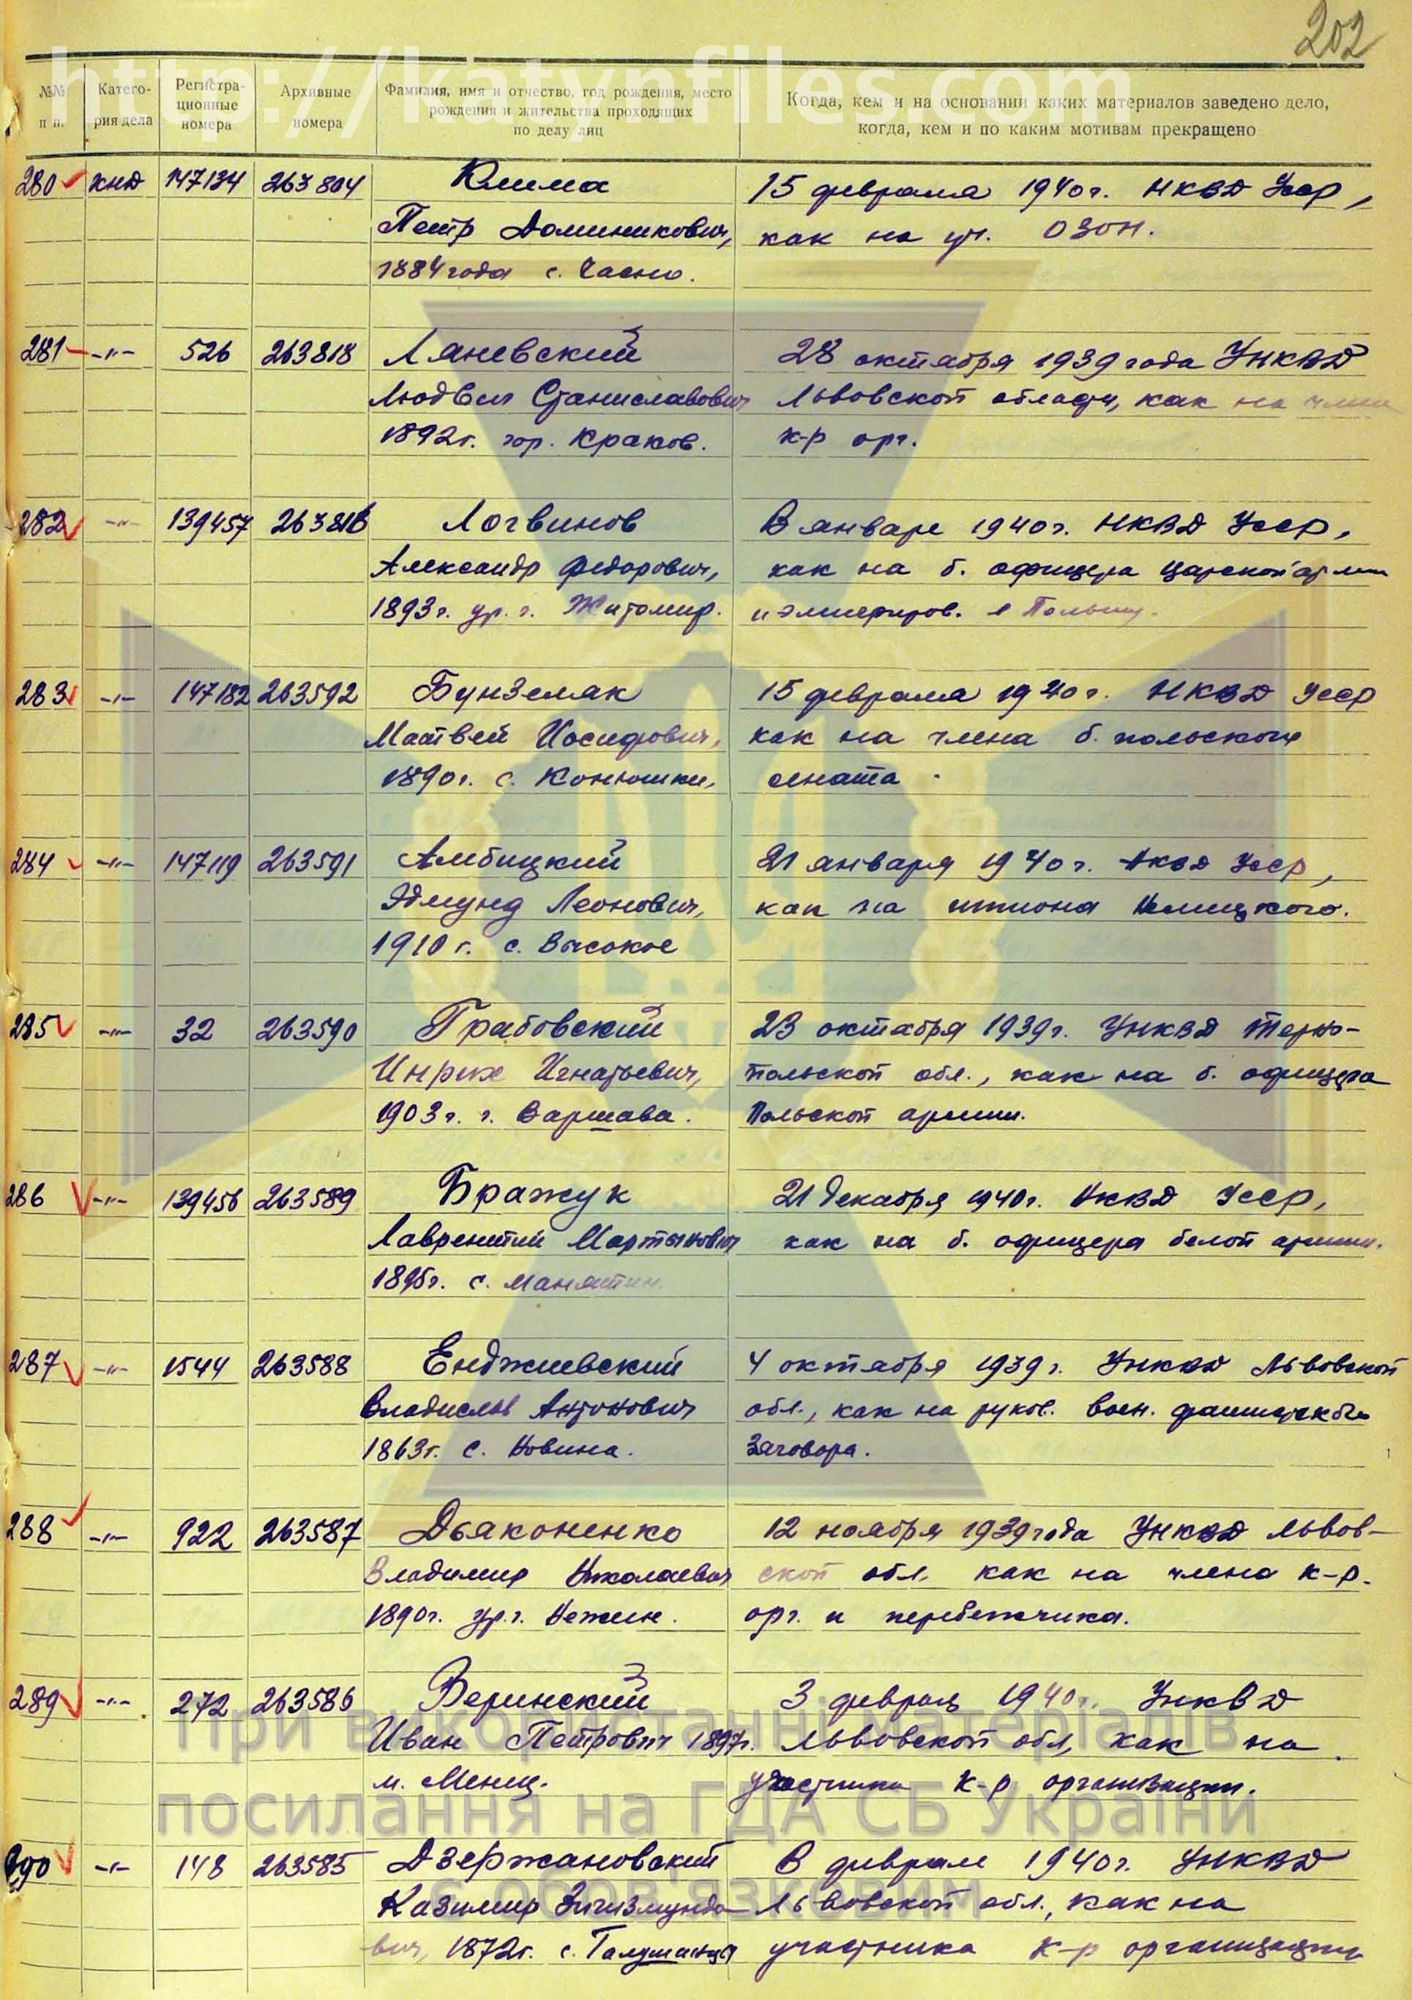 202
http://katynfiles.com
№№ п п.
Катего-
рия дела
Регистра-
ционные
номера
Архивные
номера
Фамилия, имя и отчество, год рождения, место
рождения и жительства проходящих
по делу лиц
Когда, кем и на основании каких материалов заведено дело,
когда, кем и по каким мотивам прекращено
280 КНД 147134 263804 Клима 15 февраля 1940г. НКВД Усср,
Петр Доминикович, как на уч. ОЗОН.
1884 года с. Часно.
281 -"- 526 263818 Ляневский 28 октября 1939 года УНКВД
Людвиг Станиславович Львовской области, как на члена
1892г. гор. Краков. к-р орг.
282 -"- 139457 263816 Логвинов В январе 1940г. НКВД Усср,
Александр Федорович, как на б. офицера царской армии
1893г. ур. г. Житомир. и эмигриров. в Польшу.
283 -"- 147182 263592 Бунземак 15 февраля 1940г. НКВД Усср
Матвей Иосифович, как на члена б. польского
1890г. с. Конюшки, сената
284 -"- 147119 263591 Амбицкий 21 января 1940г. НКВД Усср,
Эдмунд Леонович, как на шпиона немецкого.
1910г. с. Высокое
285 -"- 32 263590 Грабовский 23 октября 1939г. УНКВД Терно-
Инрих Игнатьевич, польской обл., как на б. офицера
1903г. г. Варшава. Польской армии.
286 -"- 139456 263589 Бражук 21 декабря 1940г. НКВД Усср,
Лаврентий Мартынович как на б. офицера белой армии.
1895г. с. Манятин.
287 -"- 1544 263588 Енджиевский 4 октября 1939г. УНКВД Львовской
Владислав Антонович обл., как на руков. воен. фашистского
1863г. с. Новина. заговора.
288 -"- 922 263587 Дьяконенко 12 ноября 1939 года УНКВД Львов-
Владимир Николаевич ской обл. как на члена к-р.
1890г. ур. г. Нежин. орг. и перебежчика.
289 -"- 272 263586 Веринский 3 февраля 1940г. УНКВД
Иван Петрович 1897г. Львовской обл, как на
м. участника к-р организации.
290 -"- 148 263585 Дзержановский В феврале 1940г. УНКВД
Казимир Зигизмундо- Львовской обл., как на
вич, 1872г. с. участника к-р организации
При використанні матеріалів
посилання на ГДА СБ України
є обов'язковим